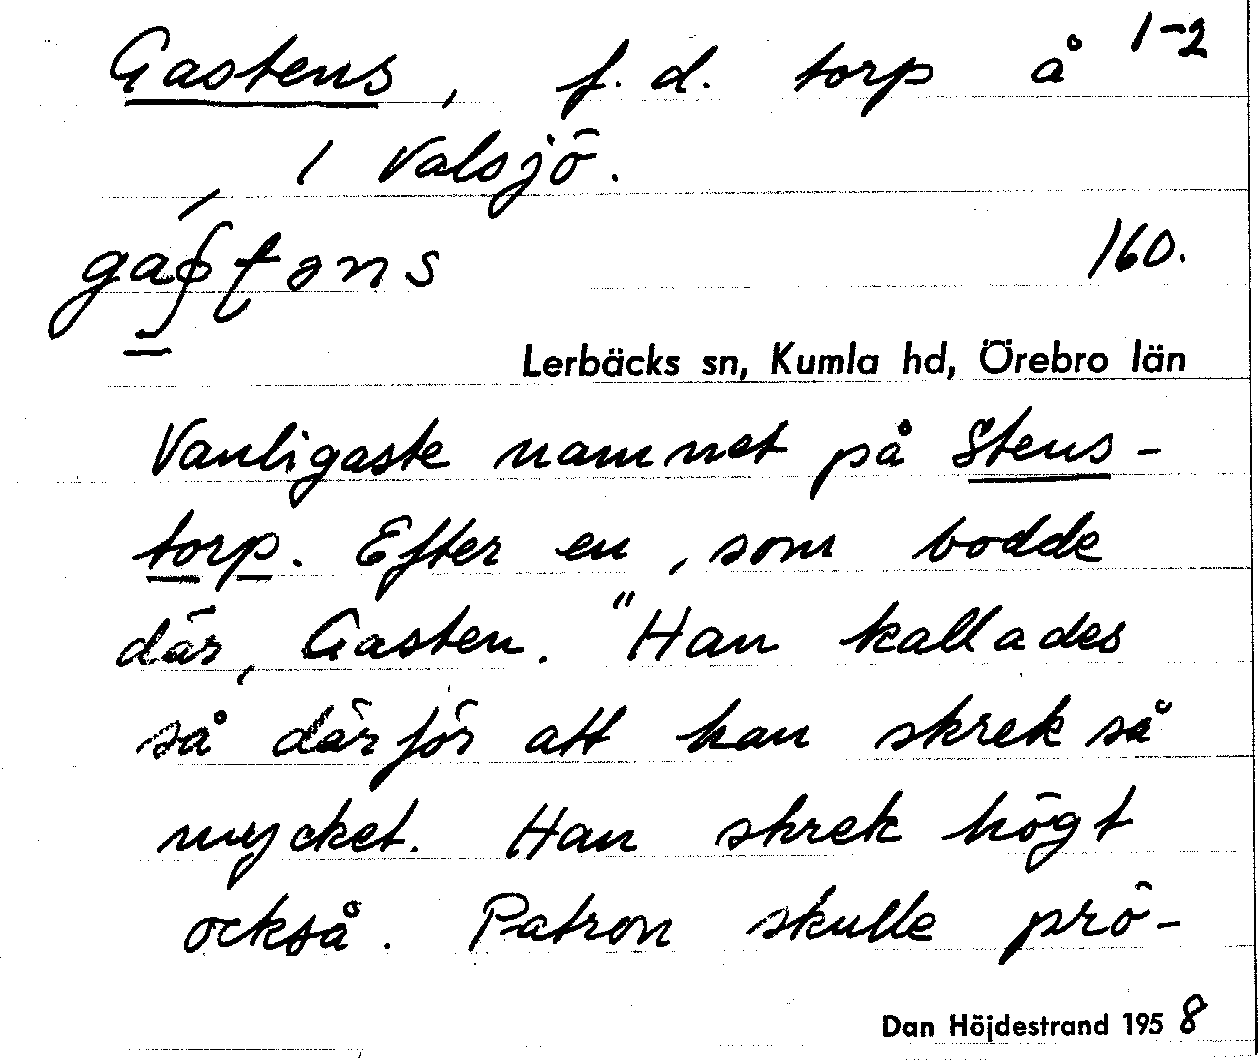 Gastens, f.d. torp å 1-2
1 Valsjö.
160.
Lerbäcks sn, Kumla hd, Örebro län
Vanligaste namnet på Stens-
torp. Efter en, som bodde
där, Gasten. "Han kallades
så därför att han skrek så
mycket. Han skrek högt
också. Patron skulle prö-
Dan Höjdestrand 1958